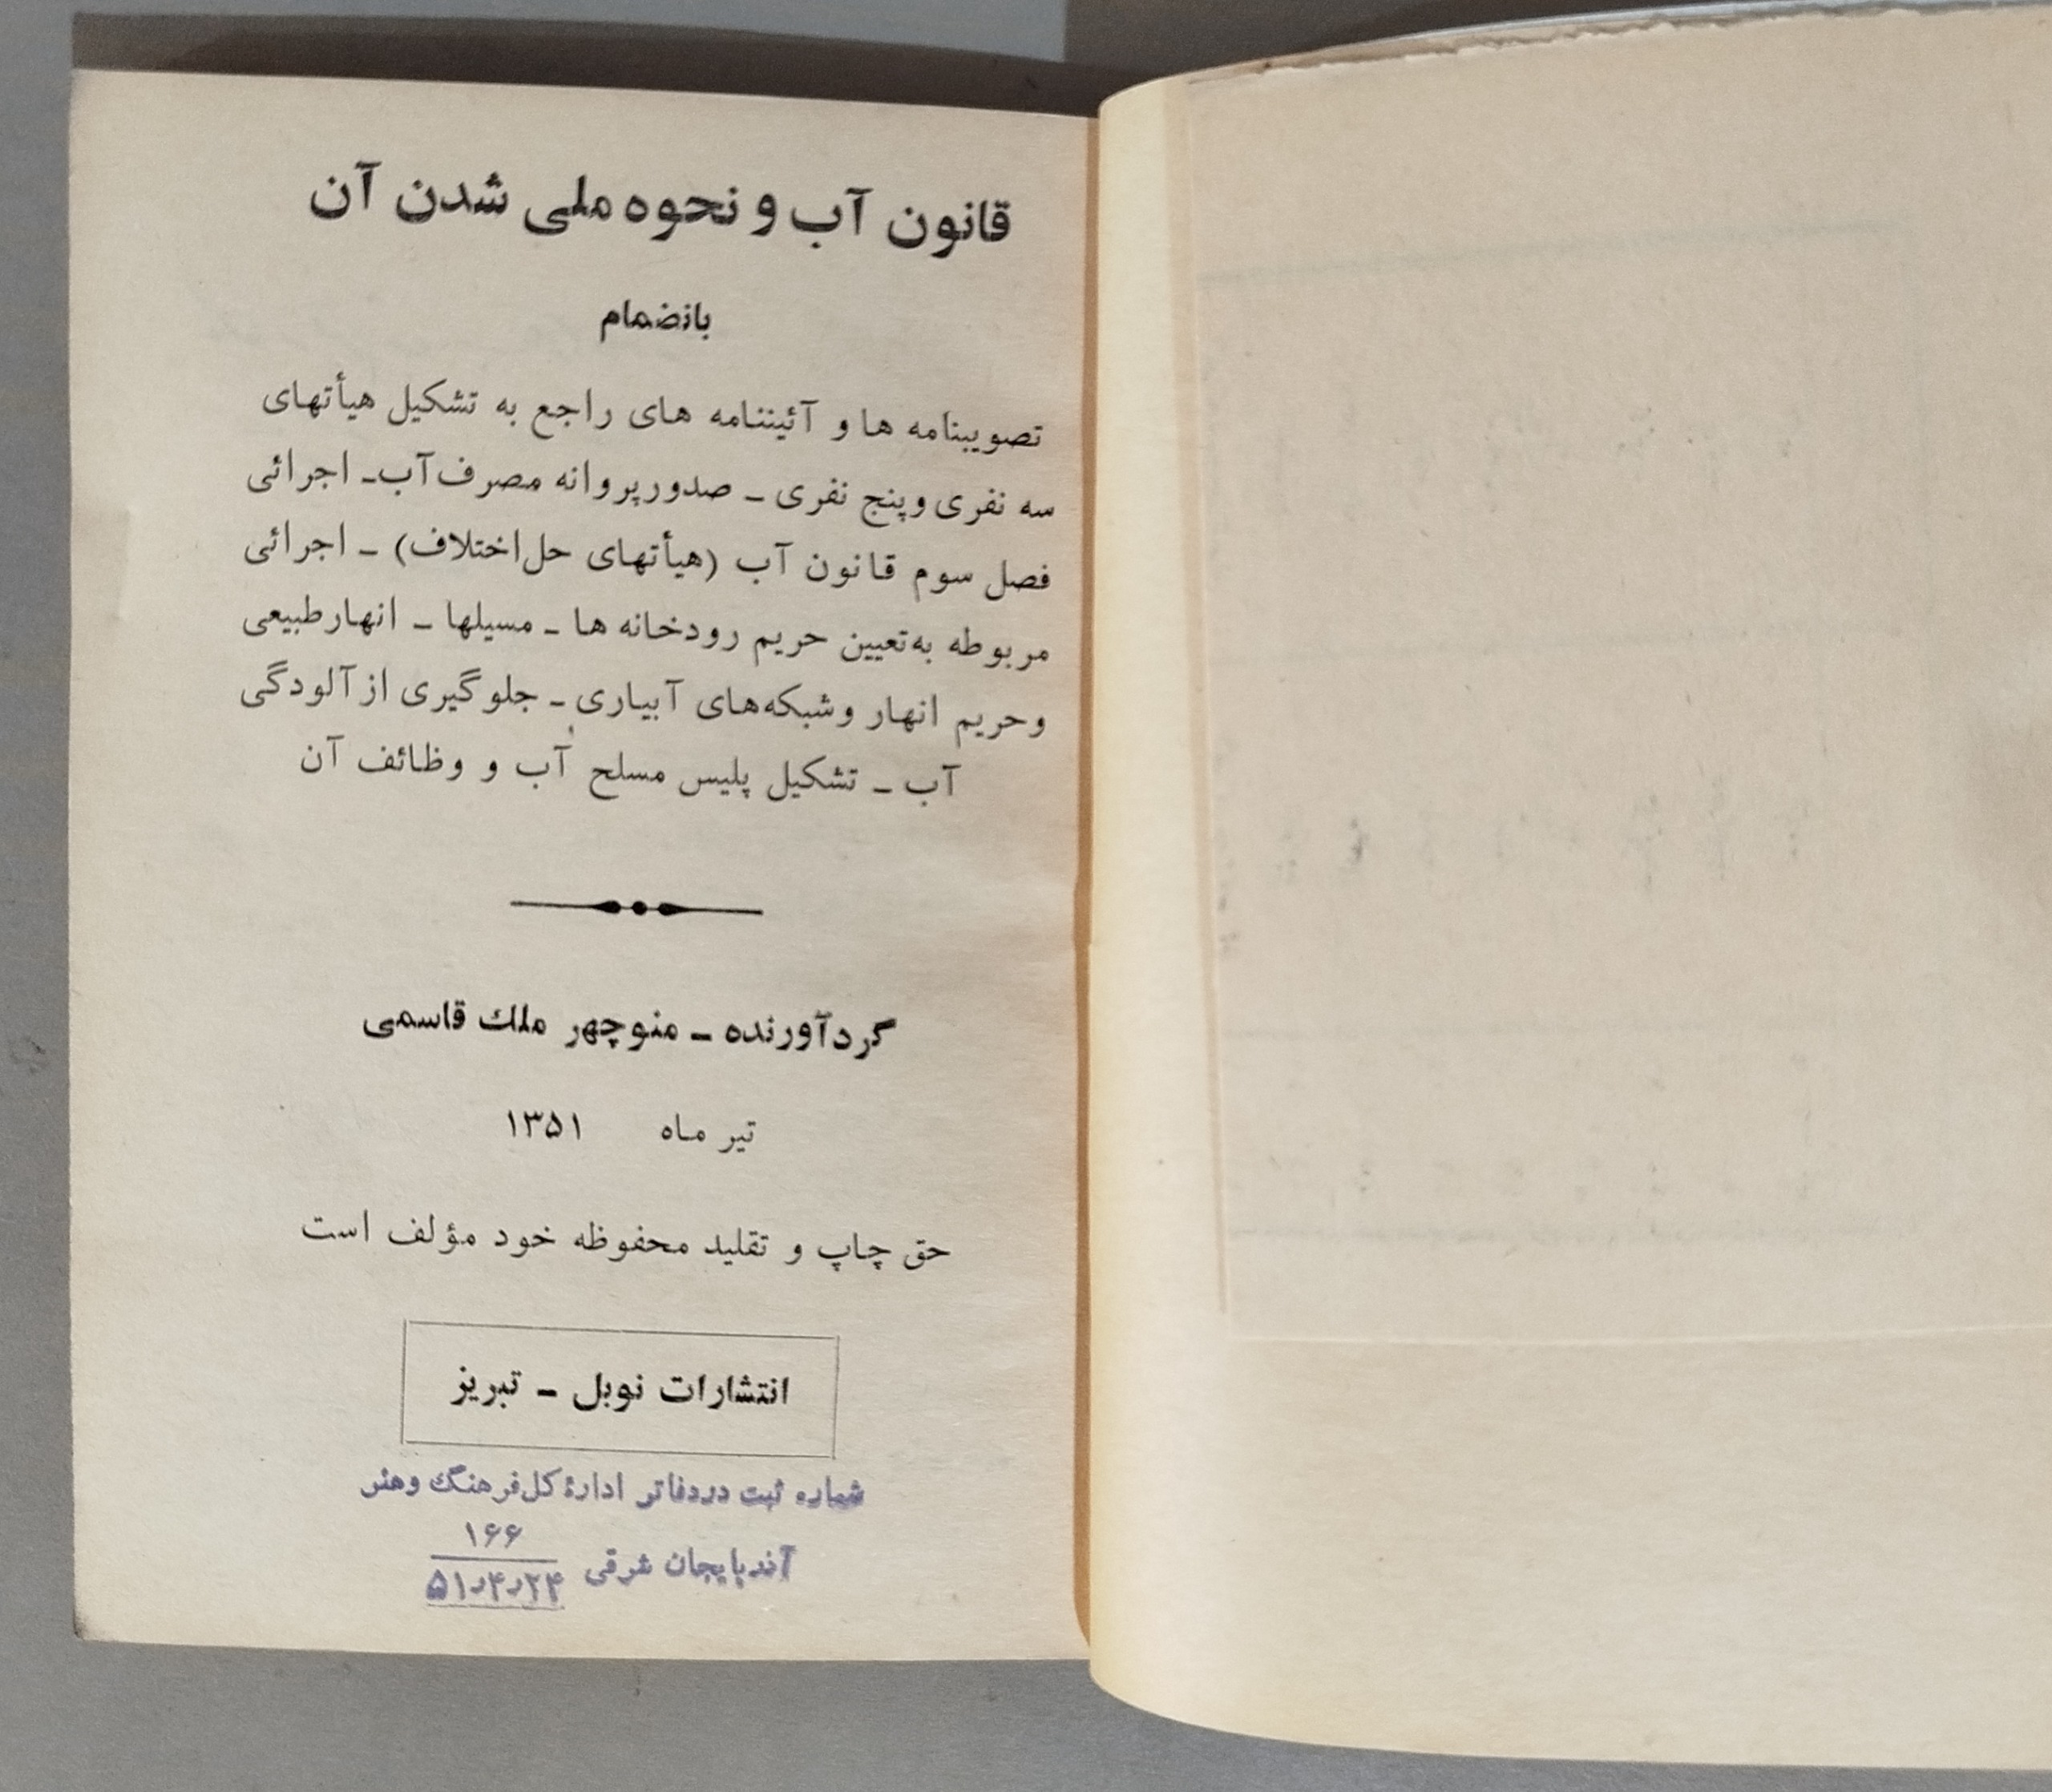 قانون آب و نحوه ملی شدن آن
بانضمام
تصویبنامه ها و آئیننامه های راجع به تشکیل هیأتهای
سه نفری و پنج نفری ـ صدور پروانه مصرف آب ـ اجرائی
فصل سوم قانون آب (هیأتهای حل اختلاف) ـ اجرائی
مربوطه به تعیین حریم رودخانه ها ـ مسیلها ـ انهار طبیعی
وحریم انهار وشبکه‌های آبیاری ـ جلوگیری از آلودگی
آب ـ تشکیل پلیس مسلح آب و وظائف آن
گردآورنده ـ منوچهر ملك قاسمی
تیر ماه ۱۳۵۱
حق چاپ و تقلید محفوظه خود مؤلف است
انتشارات نوبل ـ تبریز
شماره ثبت در دفاتر ادارهٔ کل فرهنگ و هنر
آذربایجان شرقی ۱۶۶
۵۱٫۴٫۲۴